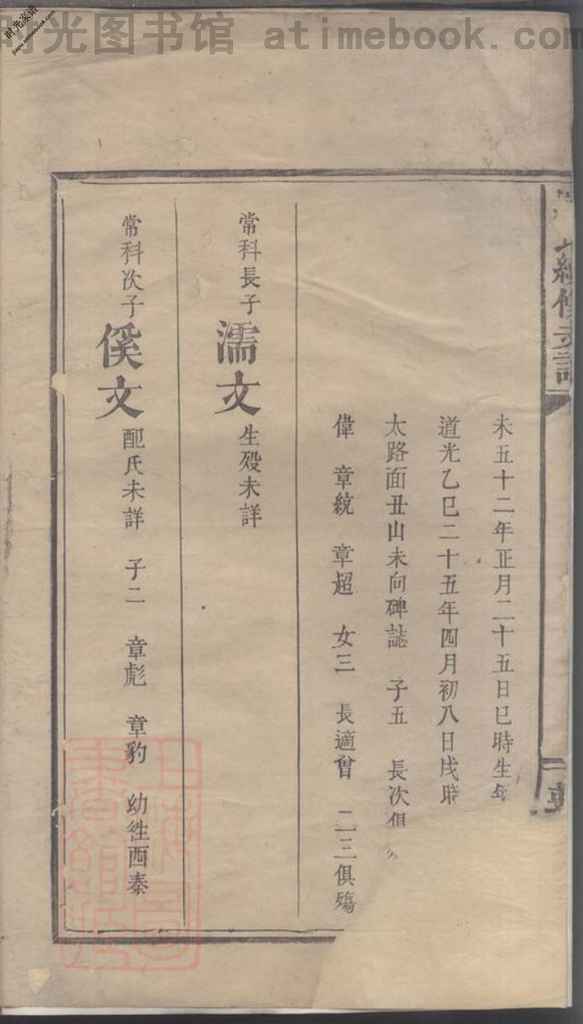 时光图书馆 atimebook.com
修支譜
未五十二年正月二十五日巳時生
道光乙巳二十五年四月初八日戌時
太路面丑山未向碑誌 子五 長次俱
偉 章統 章超 女三 長適曾 二三俱殤
常科長子 濡文 生殁未詳
常科次子 傒文 配氏未詳 子二 章彪 章豹 幼往西秦